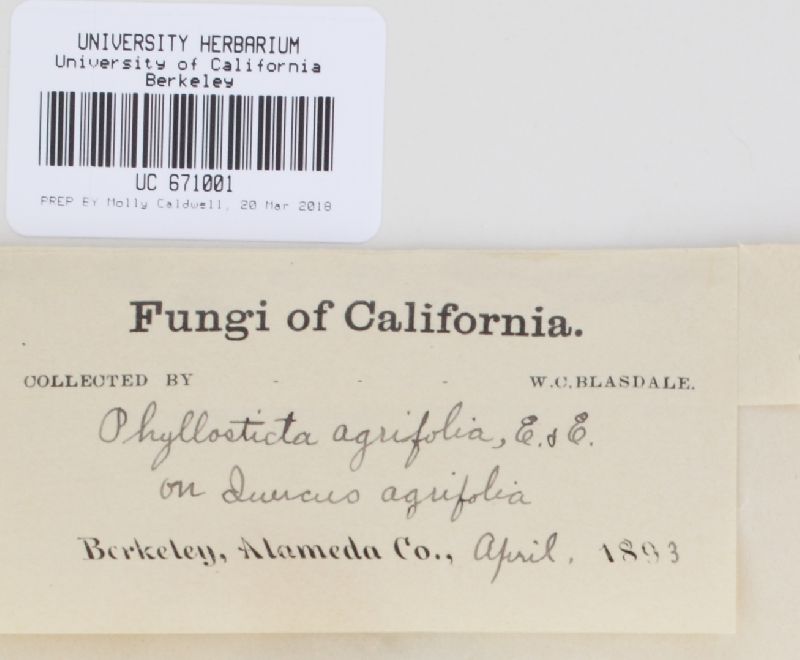 UNIVERSITY HERBARIUM
University of California
Berkeley
UC 671001
PREP BY Molly Caldwell, 20 Mar 2018
Fungi of California.
COLLECTED BY - - - W.C.BLASDALE.
Phyllosticta agrifolia, E. & E.
on Quercus agrifolia
Berkeley, Alameda Co., April. 1893